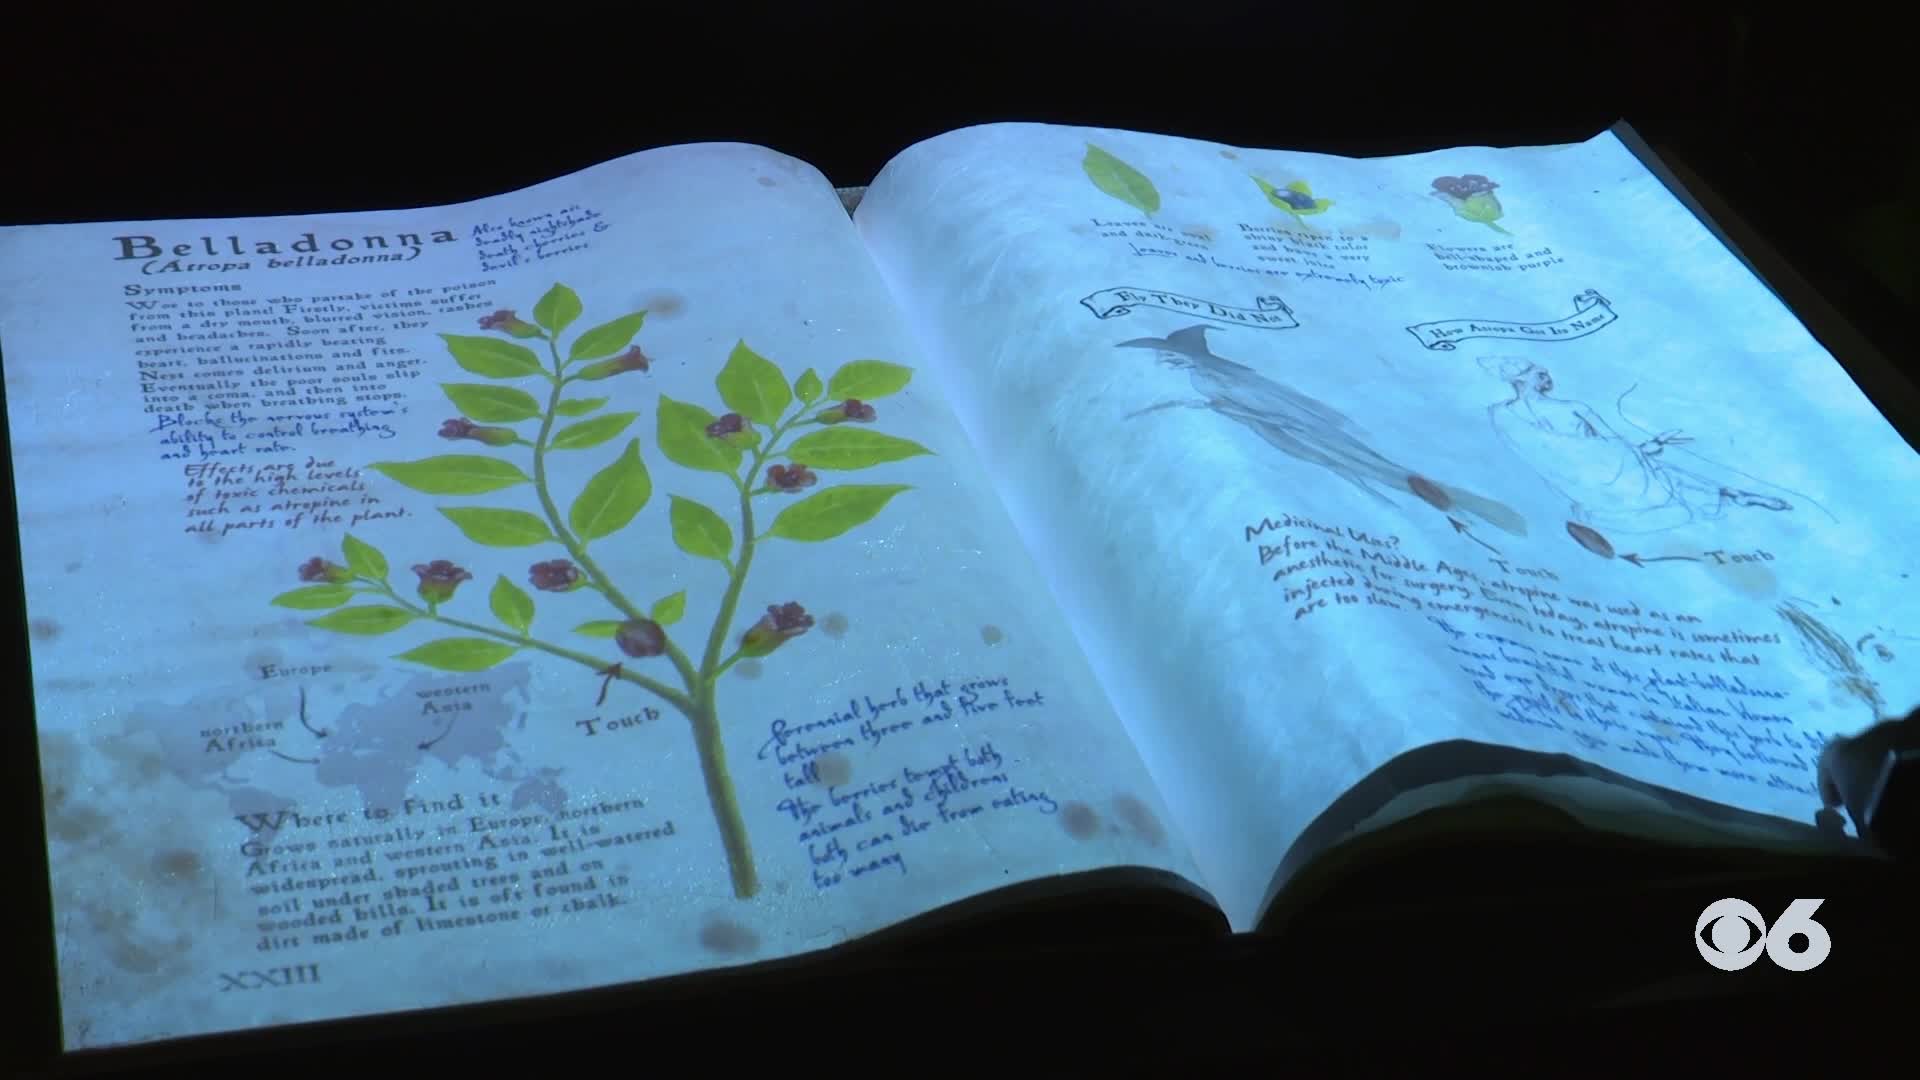 Belladonna
(Atropa belladonna)
Also known as:
deadly nightshade
death cherries &
devil's berries
Symptoms
Woe to those who partake of the poison
from this plant! Firstly, victims suffer
from a dry mouth, blurred vision, rashes
and headaches. Soon after, they
experience a rapidly beating
heart, hallucinations and fits.
Next comes delirium and anger.
Eventually the poor souls slip
into a coma, and then into
death when breathing stops.
Blocks the nervous system's
ability to control breathing
and heart rate.
Effects are due
to the high levels
of toxic chemicals
such as atropine in
all parts of the plant.
Europe
western
Asia
northern
Africa
Touch
Where to find it
Grows naturally in Europe, northern
Africa and western Asia. It is
widespread, sprouting in well-watered
soil under shaded trees and on
wooded hills. It is oft found in
dirt made of limestone or chalk.
XXIII
Perennial herb that grows
between three and five feet
tall
The berries tempt both
animals and children;
both can die from eating
too many
Leaves are oval
and dark-green
Berries ripen to a
shiny black color
and have a very
sweet juice
Flowers are
bell-shaped and
brownish purple
leaves and berries are extremely toxic
Fly They Did Not
How Atropa Got Its Name
Touch
Touch
Medicinal Uses?
Before the Middle Ages, atropine was used as an
anesthetic for surgery. Even today, atropine is sometimes
injected during emergencies to treat heart rates that
are too slow.
The common name of the plant-belladonna-
means beautiful woman in Italian. Women
used eye drops that contained the herb to
the pupils in their eyes. They believed
would make them more
CBS 6